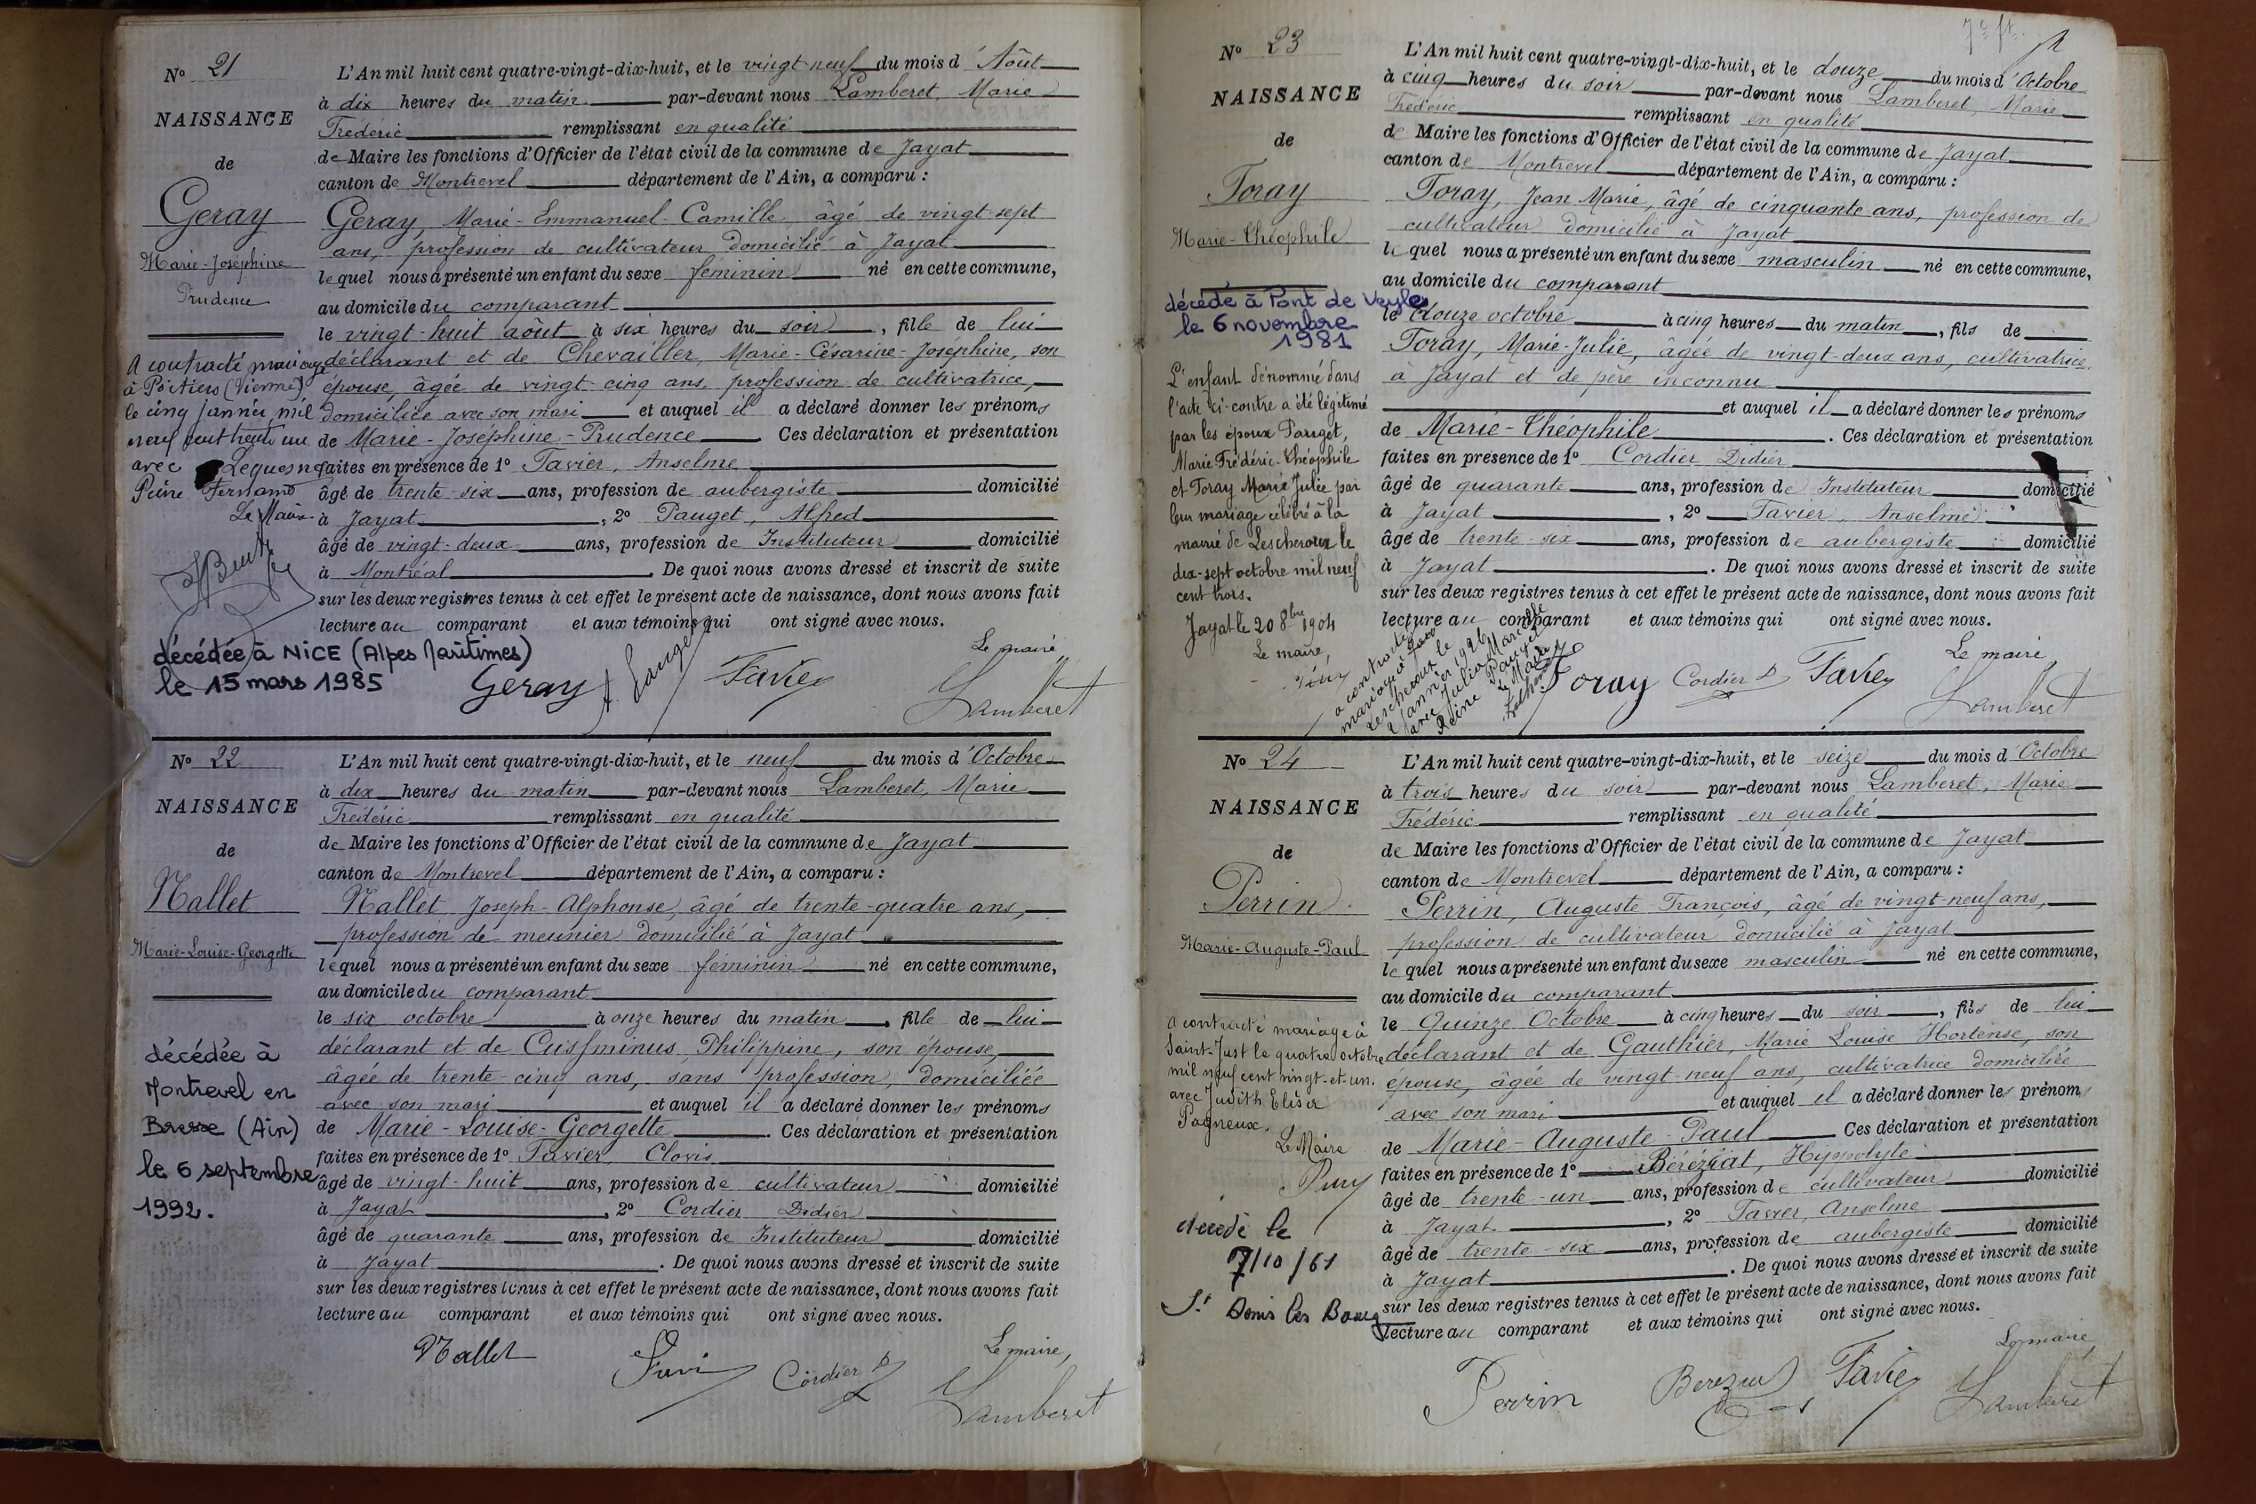 N° 21
NAISSANCE
de
Geray
Marie-Joséphine
Prudence
A contracté mariage
à Poitiers (Vienne)
le cinq janvier mil
neuf cent trente un
avec Lequesne
Fernand
Le Maire
décédée à NICE (Alpes Maritimes)
le 15 mars 1985
L'An mil huit cent quatre-vingt-dix-huit, et le vingt-neuf du mois d'Août
à dix heures du matin par-devant nous Lamberet, Marie
Frédéric remplissant en qualité
de Maire les fonctions d'Officier de l'état civil de la commune de Jayat
canton de Montrevel département de l'Ain, a comparu :
Geray, Marie-Emmanuel-Camille âgé de vingt-sept
ans, profession de cultivateur domicilié à Jayat
lequel nous a présenté un enfant du sexe féminin né en cette commune,
au domicile du comparant
le vingt-huit août à six heures du soir, fille de lui
déclarant et de Chevailler, Marie-Césarine-Joséphine, son
épouse, âgée de vingt-cinq ans, profession de cultivatrice,
domiciliée avec son mari et auquel il a déclaré donner les prénoms
de Marie-Joséphine-Prudence Ces déclaration et présentation
faites en présence de 1° Favier, Anselme
âgé de trente-six ans, profession de aubergiste domicilié
à Jayat, 2° Pauget, Alfred
âgé de vingt-deux ans, profession de Instituteur domicilié
à Montréal. De quoi nous avons dressé et inscrit de suite
sur les deux registres tenus à cet effet le présent acte de naissance, dont nous avons fait
lecture au comparant et aux témoins qui ont signé avec nous.
Le maire
Geray A. Pauget Favier Lamberet
N° 22
NAISSANCE
de
Nallet
Marie-Louise-Georgette
décédée à
Montrevel en
Bresse (Ain)
le 6 septembre
1992.
L'An mil huit cent quatre-vingt-dix-huit, et le neuf du mois d'Octobre
à dix heures du matin par-devant nous Lamberet, Marie
Frédéric remplissant en qualité
de Maire les fonctions d'Officier de l'état civil de la commune de Jayat
canton de Montrevel département de l'Ain, a comparu :
Nallet Joseph-Alphonse, âgé de trente-quatre ans,
profession de meunier domicilié à Jayat
lequel nous a présenté un enfant du sexe féminin né en cette commune,
au domicile du comparant
le six octobre à onze heures du matin, fille de lui
déclarant et de Philippine, son épouse,
âgée de trente-cinq ans, sans profession, domiciliée
avec son mari et auquel il a déclaré donner les prénoms
de Marie-Louise-Georgette. Ces déclaration et présentation
faites en présence de 1° Favier Clovis
âgé de vingt-huit ans, profession de cultivateur domicilié
à Jayat, 2° Cordier Didier
âgé de quarante ans, profession de Instituteur domicilié
à Jayat. De quoi nous avons dressé et inscrit de suite
sur les deux registres tenus à cet effet le présent acte de naissance, dont nous avons fait
lecture au comparant et aux témoins qui ont signé avec nous.
Le maire,
Nallet Cordier D Lamberet
N° 23
NAISSANCE
de
Foray
Marie-Théophile
décédé à Pont de Veyle
le 6 novembre
1981
L'enfant dénommé dans
l'acte ci-contre a été légitimé
par les époux Pauget,
Marie Frédéric-Théophile
et Foray Marie Julie par
leur mariage célébré à la
mairie de Lescheroux le
dix-sept octobre mil neuf
cent trois.
Jayat le 20 8bre 1904
Le maire,
a contracté
mariage à
Lescheroux le
2 janvier 1926
avec Julia Marcelle
Reine Pauget
Le Maire
L'An mil huit cent quatre-vingt-dix-huit, et le douze du mois d'Octobre
à cinq heures du soir par-devant nous Lamberet, Marie
Frédéric remplissant en qualité
de Maire les fonctions d'Officier de l'état civil de la commune de Jayat
canton de Montrevel département de l'Ain, a comparu :
Foray, Jean Marie, âgé de cinquante ans, profession de
cultivateur domicilié à Jayat
lequel nous a présenté un enfant du sexe masculin né en cette commune,
au domicile du comparant
le douze octobre à cinq heures du matin, fils de
Foray, Marie-Julie, âgée de vingt-deux ans, cultivatrice
à Jayat et de père inconnu
et auquel il a déclaré donner les prénoms
de Marie-Théophile. Ces déclaration et présentation
faites en présence de 1° Cordier Didier
âgé de quarante ans, profession de Instituteur domicilié
à Jayat, 2° Favier, Anselme
âgé de trente-six ans, profession de aubergiste domicilié
à Jayat. De quoi nous avons dressé et inscrit de suite
sur les deux registres tenus à cet effet le présent acte de naissance, dont nous avons fait
lecture au comparant et aux témoins qui ont signé avec nous.
Le maire
Foray Cordier D Favier Lamberet
N° 24
NAISSANCE
de
Perrin
Marie-Auguste-Paul
A contracté mariage à
Saint-Just le quatre octobre
mil neuf cent vingt-et-un.
avec Judith Elisa
Pagneux.
Le Maire
décédé le
7/10/61
St Denis les Bourg
L'An mil huit cent quatre-vingt-dix-huit, et le seize du mois d'Octobre
à trois heures du soir par-devant nous Lamberet, Marie
Frédéric remplissant en qualité
de Maire les fonctions d'Officier de l'état civil de la commune de Jayat
canton de Montrevel département de l'Ain, a comparu :
Perrin, Auguste François, âgé de vingt-neuf ans,
profession de cultivateur domicilié à Jayat
lequel nous a présenté un enfant du sexe masculin né en cette commune,
au domicile du comparant
le Quinze Octobre à cinq heures du soir, fils de lui
déclarant et de Gauthier, Marie Louise Hortense, son
épouse, âgée de vingt-neuf ans, cultivatrice domiciliée
avec son mari et auquel il a déclaré donner les prénoms
de Marie-Auguste-Paul Ces déclaration et présentation
faites en présence de 1° Béréziat, Hyppolyte
âgé de trente-un ans, profession de cultivateur domicilié
à Jayat, 2° Favier, Anselme
âgé de trente-six ans, profession de aubergiste domicilié
à Jayat. De quoi nous avons dressé et inscrit de suite
sur les deux registres tenus à cet effet le présent acte de naissance, dont nous avons fait
lecture au comparant et aux témoins qui ont signé avec nous.
Le maire
Perrin Favier Lamberet